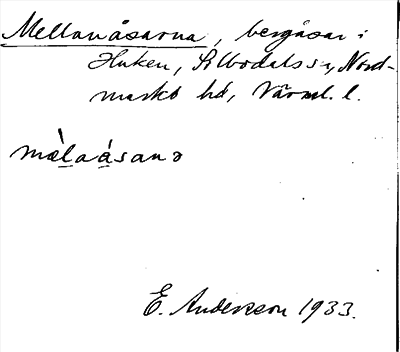 Mellanåsarna, bergåsar i
Huken, Silbodals sn, Nord-
marks hd, Värml. l.
mæ̀laásanə
E. Andersson 1933.